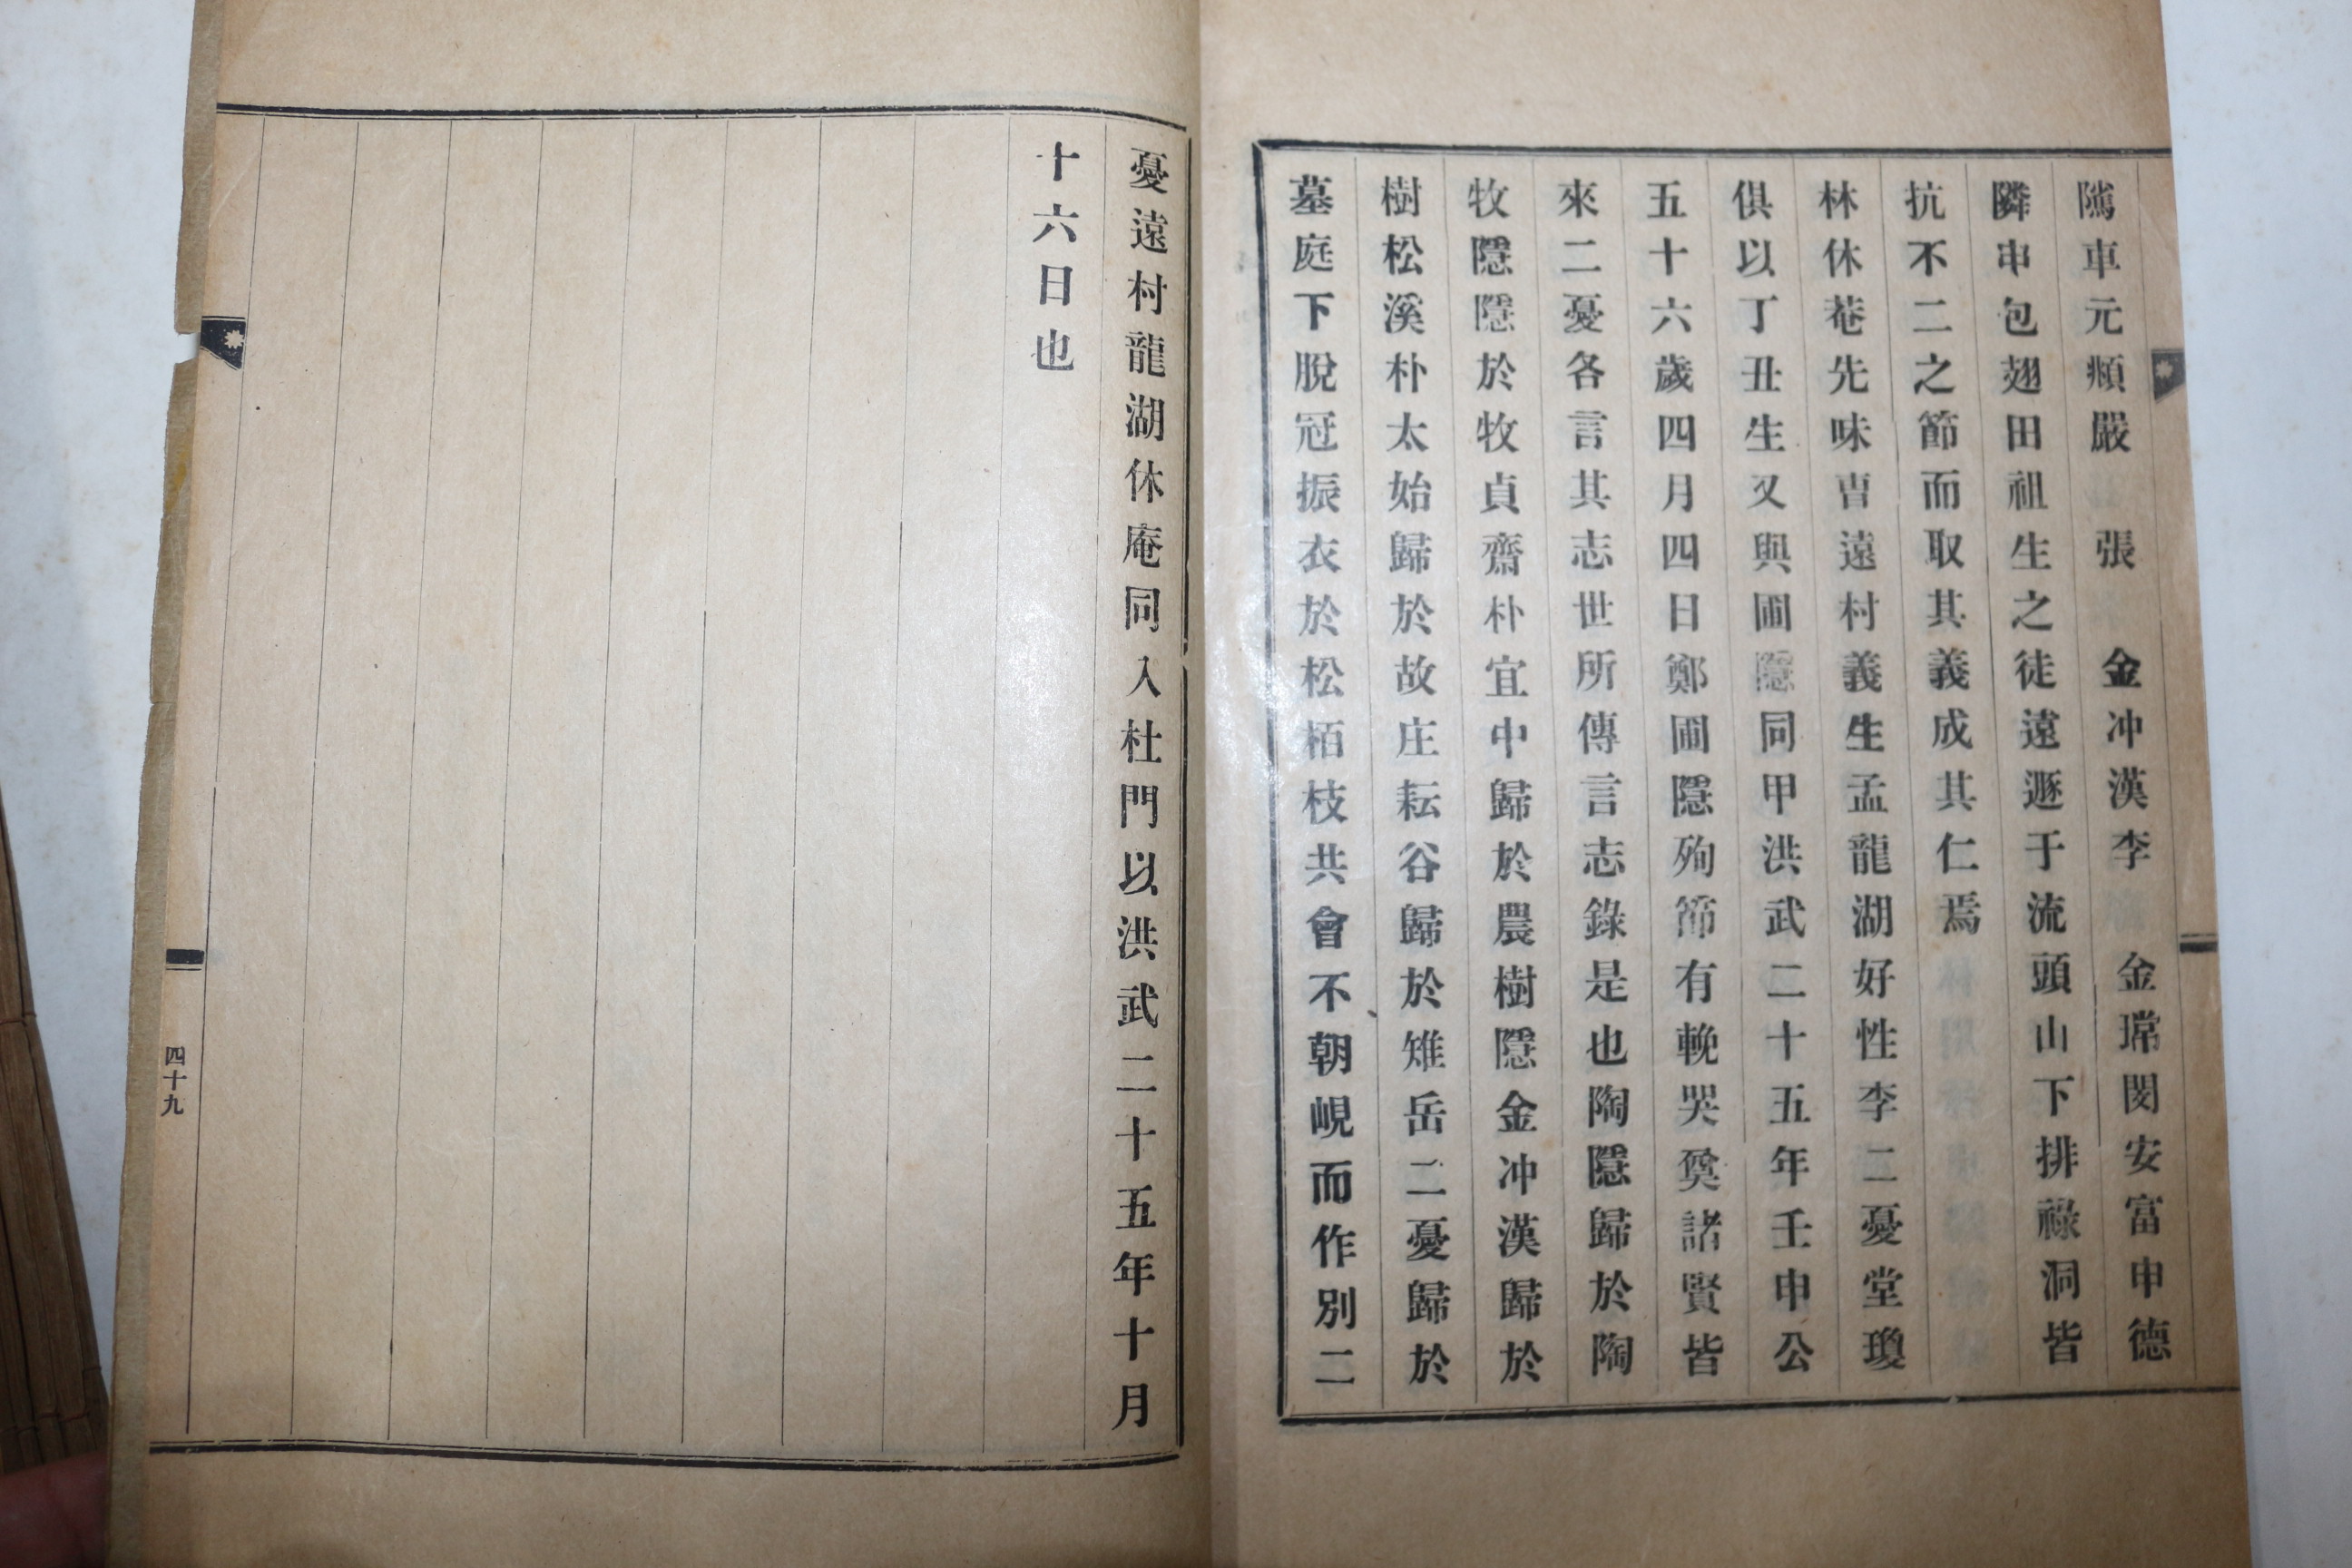 隲車元頫嚴 張 金冲漢李 金瑺閔安富申德
隣申包翅田祖生之徒遠遯于流頭山下排祿洞皆
抗不二之節而取其義成其仁焉
林休菴先味曺遠村義生孟龍湖好性李二憂堂瓊
俱以丁丑生又與圃隱同甲洪武二十五年壬申公
五十六歲四月四日鄭圃隱殉節有輓哭奠諸賢皆
來二憂各言其志世所傳言志錄是也陶隱歸於陶
牧隱隱於牧貞齋朴宜中歸於農樹隱金冲漢歸於
樹松溪朴太始歸於故庄耘谷歸於雉岳二憂歸於
墓庭下脫冠振衣於松栢枝共會不朝峴而作別二
憂遠村龍湖休庵同入杜門以洪武二十五年十月
十六日也
四十九